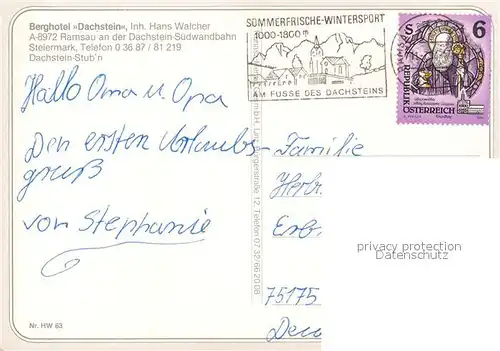 Berghotel »Dachstein«, Inh. Hans Walcher
A-8972 Ramsau an der Dachstein-Südwandbahn
Steiermark, Telefon 0 36 87 / 81 219
Dachstein-Stub'n
SOMMERFRISCHE-WINTERSPORT
1000-1800 m
AM FUSSE DES DACHSTEINS
6 S
REPUBLIK
ÖSTERREICH
Hallo Oma u. Opa
Den ersten Urlaubs-
gruß
von Stephanie
Familie
Herb
75175
straße 12, Telefon 07 32/66 20 08
privacy protection
Datenschutz
Nr. HW 63